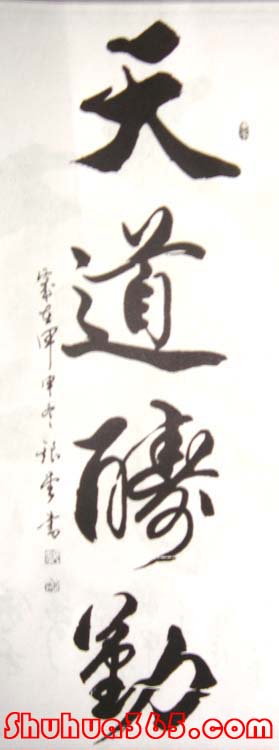 天道酬勤
歲在甲申冬银堂書
Shuhua365.com